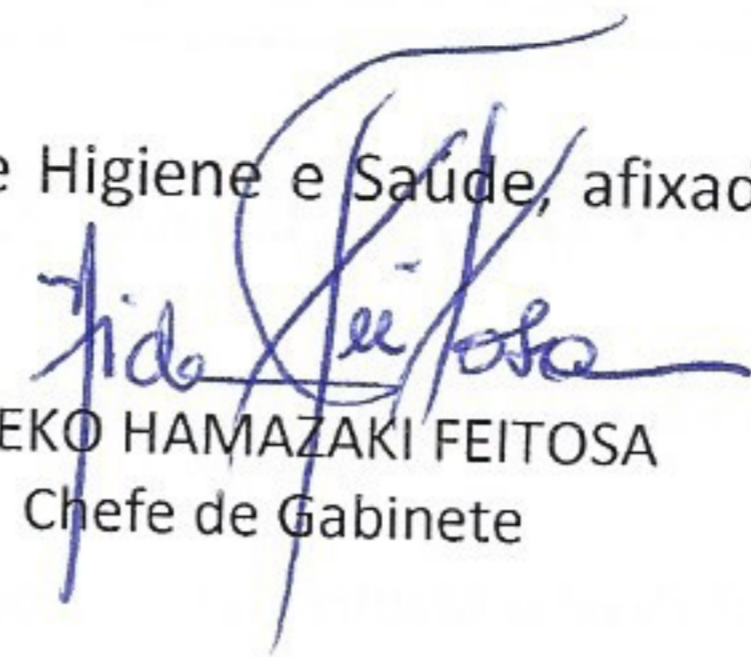 e Higiene e Saúde, afixad
Feitosa
EKO HAMAZAKI FEITOSA
Chefe de Gabinete